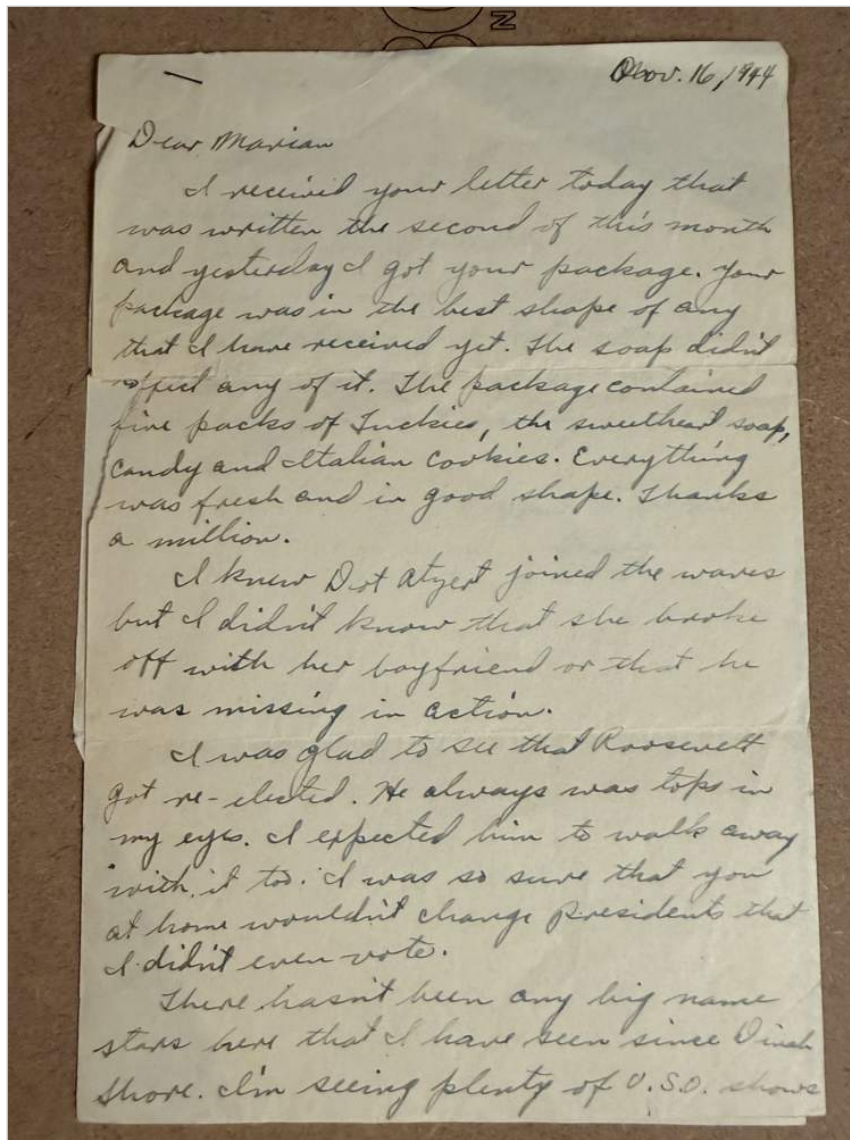 Nov. 16, 1944
Dear Marian
I received your letter today that
was written the second of this month
and yesterday I got your package. Your
package was in the best shape of any
that I have received yet. The soap didn't
any of it. The package contained
five packs of Luckies, the sweetheart soap,
candy and Italian cookies. Everything
was fresh and in good shape. Thanks
a million.
I knew Dot joined the waves
but I didn't know that she broke
off with her boyfriend or that he
was missing in action.
I was glad to see that Roosevelt
got re-elected. He always was tops in
my eyes. I expected him to walk away
with it too. I was so sure that you
at home wouldn't change Presidents that
I didn't even vote.
There hasn't been any big name
stars here that I have seen since Dinah
Shore. I'm seeing plenty of U.S.O. shows